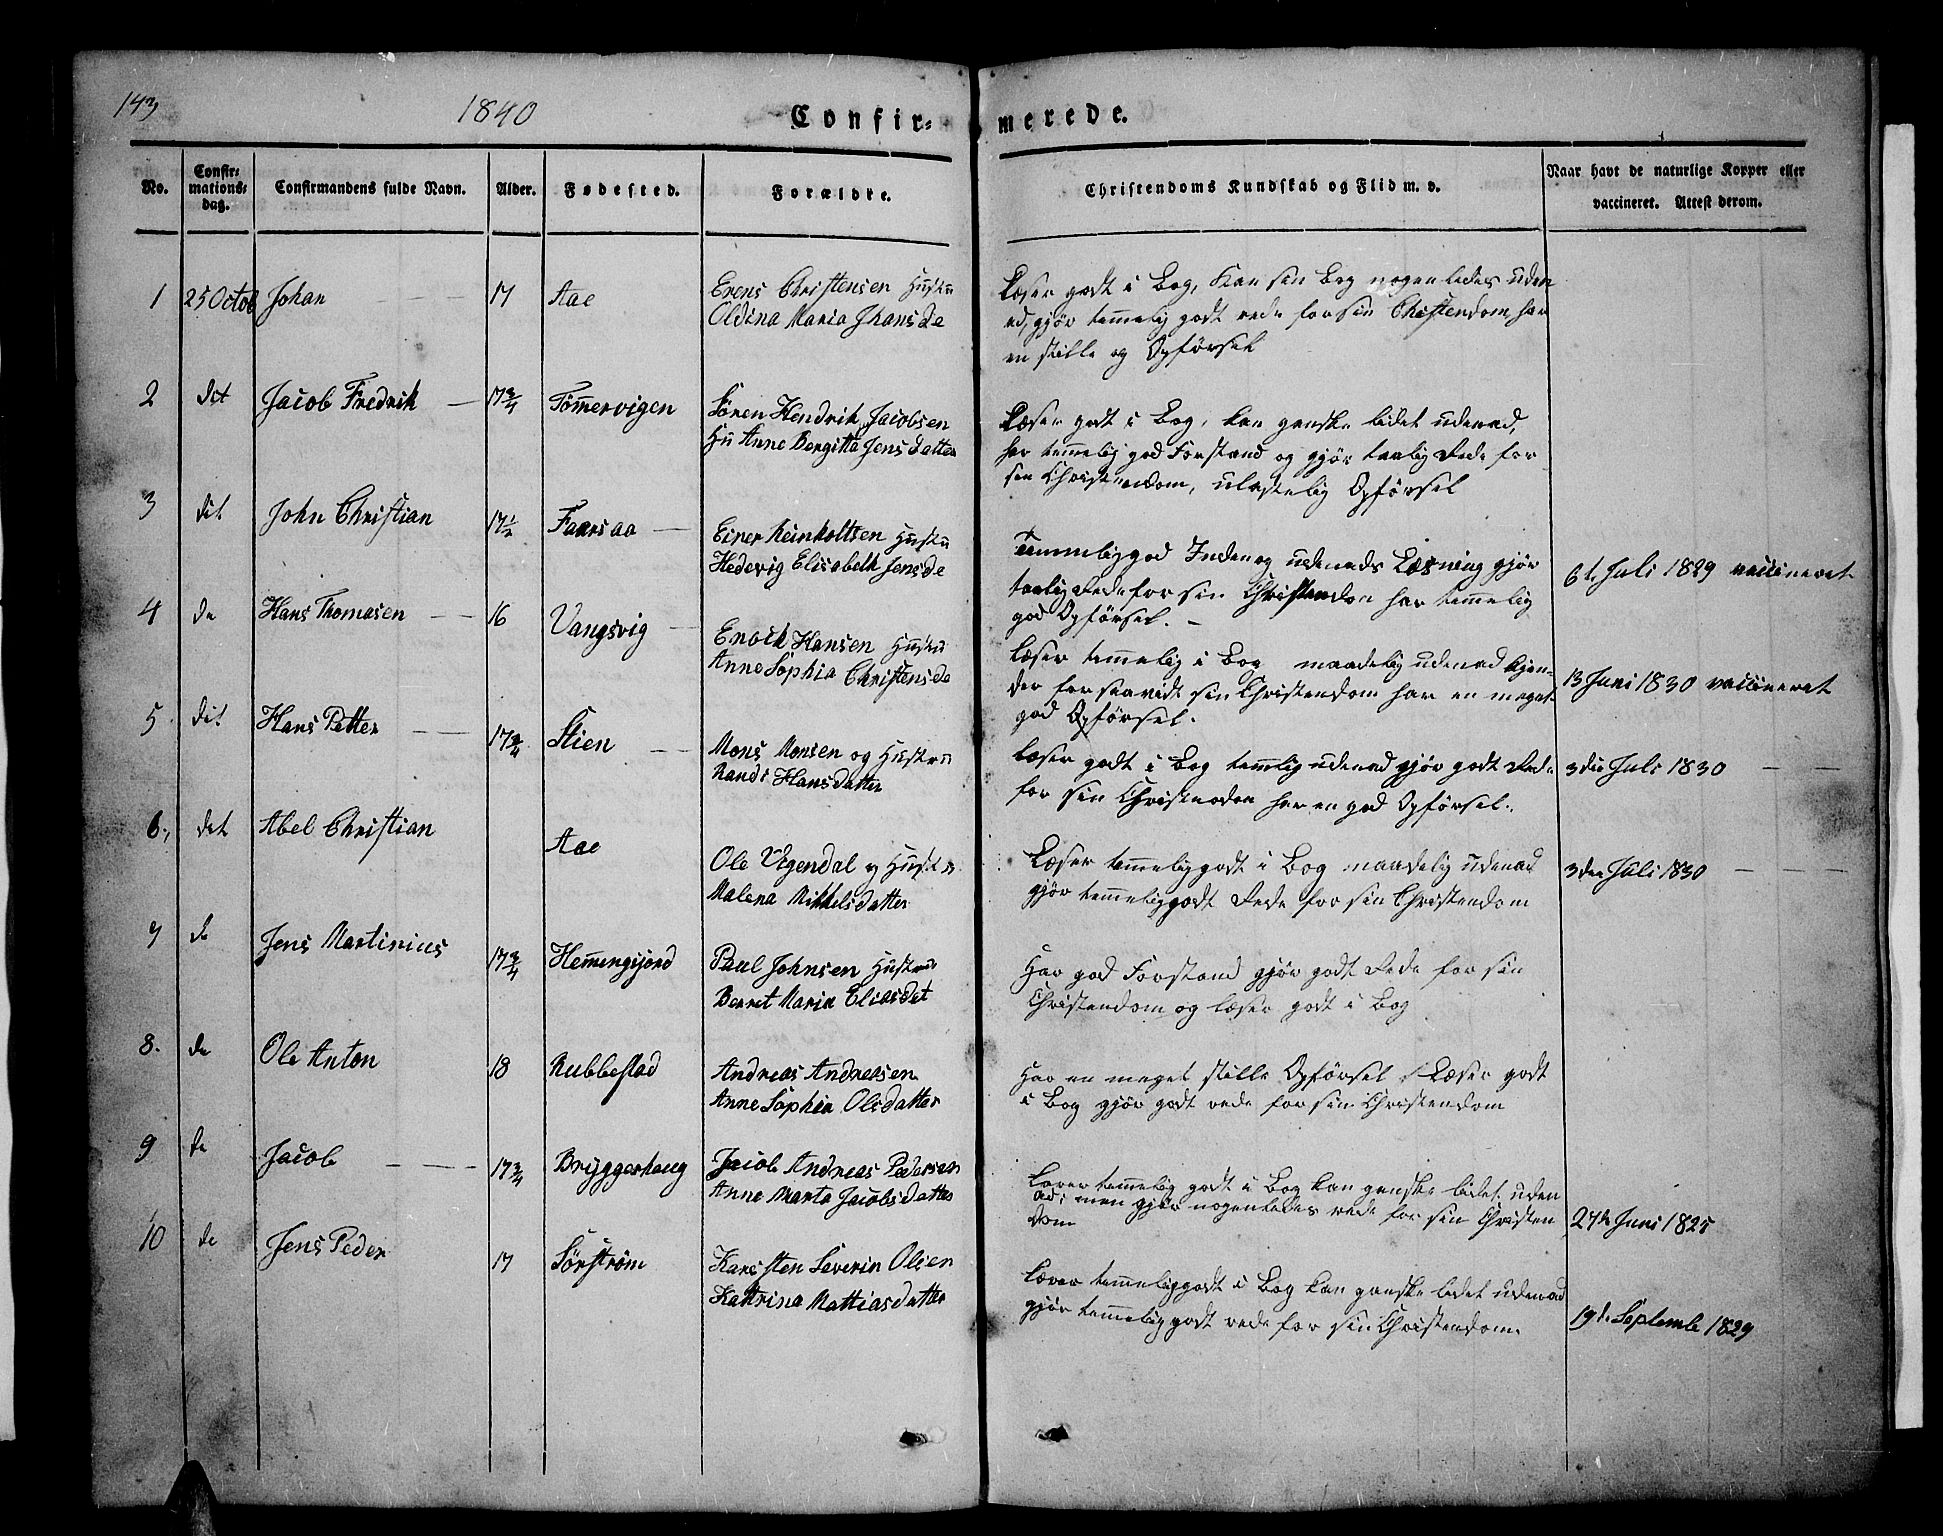 143
1840
Confir-
merede.
No.
Confir-
mations-
dag.
Confirmandens fulde Navn.
Alder.
Fødested.
Forældre.
Christendoms Kundskab og Flid m. v.
Naar havt de naturlige Kopper eller
vaccineret. Attest derom.
1 25 Octob Johan 17 Aae
Erens Christensen Hustru
Oldina Maria Jhans De
Læser godt i Bog, Kan sin Bog nogenledes uden
ad, gjør temmelig godt rede for sin Christendom, har
en stille og Opførsel
2 det Jacob Fredrik 17 3/4 Tømmervigen
Sören Hendrik Jacobsen
Hu Anne Bergitta Jens datter
Læser godt i Bog, kan ganske lidet udenad,
har temmelig god Forstand og gjør taalig Rede for
sin Christendom, ulastelig Opførsel
3 det John Christian 17 1/2 Faarsaa
Einer Reinholtsen Hustru
Hedevig Elisabeth Jens de
Temmelig god Inden og udenads Læsning gjør
taalig Rede for sin Christendom har temmelig
god Opførsel.
6t Juli 1829 vaccineret
4 de Hans Thomasen 16 Vangsvig
Enoch Hansen Hustru
Anne Sophia Christens de
læser temmelig i Bog maadelig udenad kjen-
der forsaavidt sin Christendom har en meget
god Opførsel.
13 Juni 1830 vaccineret
5. det Hans Petter 17 3/4 Stien
Mons Monsen og Hustru
Randi Hansdatter
læser godt i Bog temmelig udenad gjør godt Rede
for sin Christendom har en god Opførsel.
3die Juli 1830
6., det Abel Christian Aae
Ole Vigendal og Hustru
Malena Mikkelsdatter
Læser temmelig godt i Bog maadelig udenad
gjør temmelig godt Rede for sin Christendom
3die Juli 1830
7 de Jens Martinius 17 3/4 Hemmingsjord
Paul Johnsen Hustru
Berret Maria Elias det
Har god Forstand gjør godt Rede for sin
Christendom og læser godt i Bog
8. de Ole Anton 18 Rubbestad
Andreas Andreasen
Anne Sophia Olsdatter
Har en meget stille Opførsel Læser godt
i Bog gjør godt rede for sin Christendom
9 de Jacob 17 3/4 Bryggerhaug
Jacob Andreas Pedersen
Anne Marta Jacobsdatter
Læser temmelig godt i Bog kan ganske lidet uden
ad, men gjør nogenledes rede for sin Christen
dom
27de Juni 1825
10 de Jens Peder 17 Sörström
Karsten Severin Olsen
Kattrina Mattiasdatter
Læser temmelig godt i Bog kan ganske lidet udenad
gjør temmelig godt rede for sin Christendom.
19de Septembr 1829